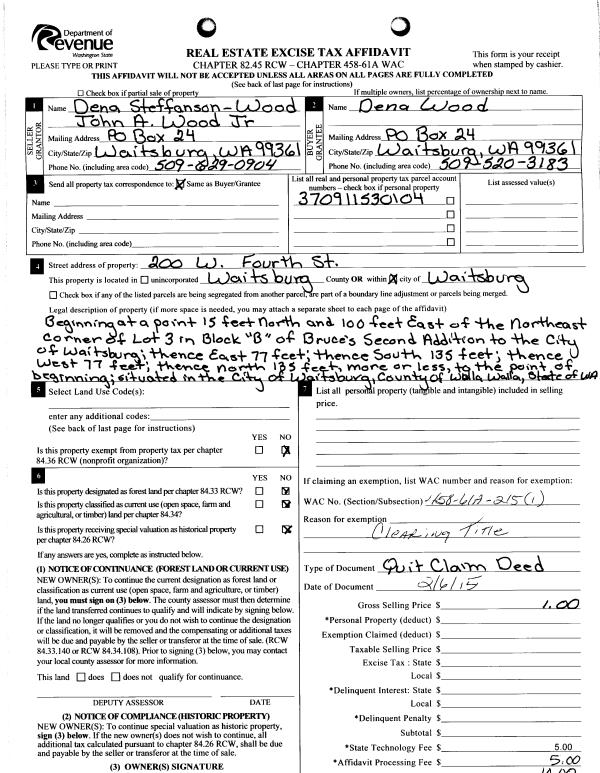 Department of
Revenue
Washington State
PLEASE TYPE OR PRINT
REAL ESTATE EXCISE TAX AFFIDAVIT
CHAPTER 82.45 RCW – CHAPTER 458-61A WAC
This form is your receipt
when stamped by cashier.
THIS AFFIDAVIT WILL NOT BE ACCEPTED UNLESS ALL AREAS ON ALL PAGES ARE FULLY COMPLETED
(See back of last page for instructions)
Check box if partial sale of property
If multiple owners, list percentage of ownership next to name.
1 Name Dena Steffanson-Wood
John A. Wood Jr
SELLER
GRANTOR
Mailing Address PO Box 24
City/State/Zip Waitsburg, WA 99361
Phone No. (including area code) 509-629-0904
2 Name Dena Wood
BUYER
GRANTEE
Mailing Address PO Box 24
City/State/Zip Waitsburg, WA 99361
Phone No. (including area code) 509-520-3183
3 Send all property tax correspondence to: Same as Buyer/Grantee
Name
Mailing Address
City/State/Zip
Phone No. (including area code)
List all real and personal property tax parcel account
numbers – check box if personal property
370911530104
List assessed value(s)
4 Street address of property: 200 W. Fourth St.
This property is located in unincorporated Waitsburg County OR within city of Waitsburg
Check box if any of the listed parcels are being segregated from another parcel, are part of a boundary line adjustment or parcels being merged.
Legal description of property (if more space is needed, you may attach a separate sheet to each page of the affidavit)
Beginning at a point 15 feet North and 100 feet East of the Northeast
corner of Lot 3 in Block "B" of Bruce's Second Addition to the City
of Waitsburg; thence East 77 feet; thence South 135 feet; thence
West 77 feet; thence north 135 feet, more or less, to the point of
beginning; situated in the City of Waitsburg, County of Walla Walla, State of WA
5 Select Land Use Code(s):
enter any additional codes:
(See back of last page for instructions)
YES NO
Is this property exempt from property tax per chapter
84.36 RCW (nonprofit organization)?
6 YES NO
Is this property designated as forest land per chapter 84.33 RCW?
Is this property classified as current use (open space, farm and
agricultural, or timber) land per chapter 84.34?
Is this property receiving special valuation as historical property
per chapter 84.26 RCW?
If any answers are yes, complete as instructed below.
(1) NOTICE OF CONTINUANCE (FOREST LAND OR CURRENT USE)
NEW OWNER(S): To continue the current designation as forest land or
classification as current use (open space, farm and agriculture, or timber)
land, you must sign on (3) below. The county assessor must then determine
if the land transferred continues to qualify and will indicate by signing below.
If the land no longer qualifies or you do not wish to continue the designation
or classification, it will be removed and the compensating or additional taxes
will be due and payable by the seller or transferor at the time of sale. (RCW
84.33.140 or RCW 84.34.108). Prior to signing (3) below, you may contact
your local county assessor for more information.
This land does does not qualify for continuance.
DEPUTY ASSESSOR DATE
(2) NOTICE OF COMPLIANCE (HISTORIC PROPERTY)
NEW OWNER(S): To continue special valuation as historic property,
sign (3) below. If the new owner(s) does not wish to continue, all
additional tax calculated pursuant to chapter 84.26 RCW, shall be due
and payable by the seller or transferor at the time of sale.
(3) OWNER(S) SIGNATURE
7 List all personal property (tangible and intangible) included in selling
price.
If claiming an exemption, list WAC number and reason for exemption:
WAC No. (Section/Subsection) 458-61A-215(1)
Reason for exemption
Clearing Title
Type of Document Quit Claim Deed
Date of Document 2/6/15
Gross Selling Price $ 1.00
*Personal Property (deduct) $
Exemption Claimed (deduct) $
Taxable Selling Price $
Excise Tax : State $
Local $
*Delinquent Interest: State $
Local $
*Delinquent Penalty $
Subtotal $
*State Technology Fee $ 5.00
*Affidavit Processing Fee $ 5.00